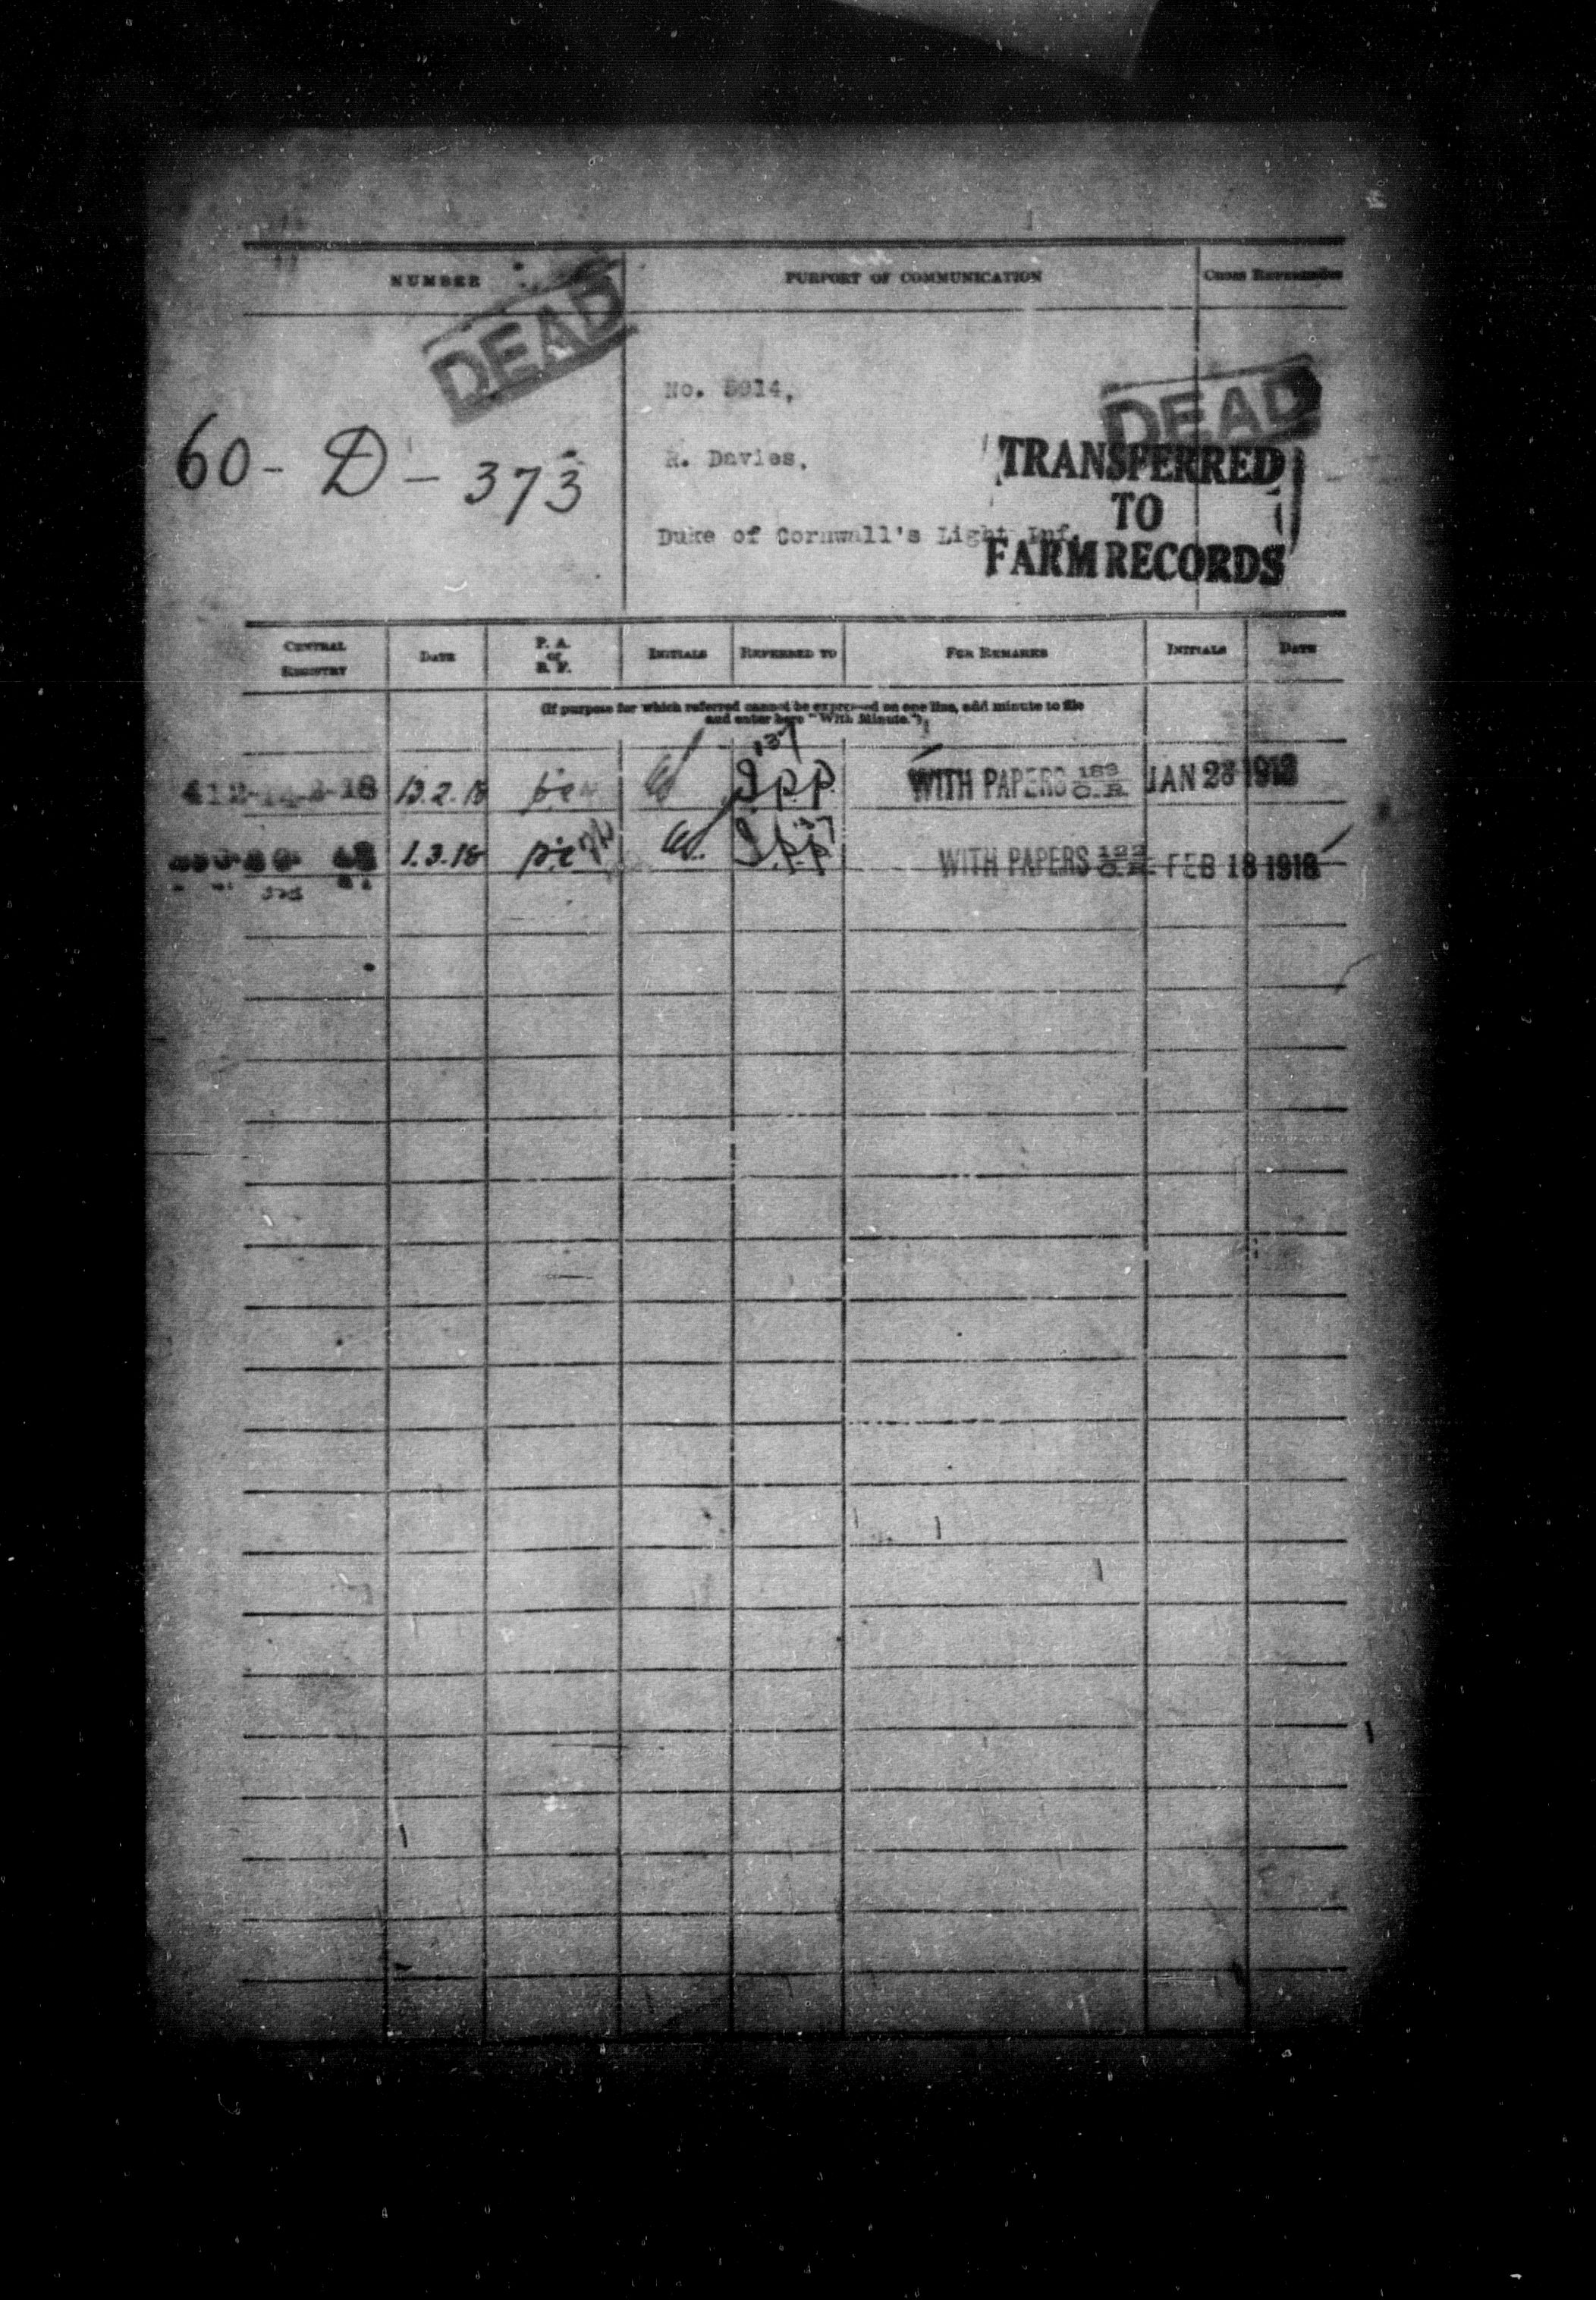 NUMBER
PURPORT OF COMMUNICATION
CROSS REFERENCES
DEAD
DEAD
No. 5914,
60 - D - 373
R. Davies,
TRANSFERRED
TO
FARM RECORDS
Duke of Cornwall's Light Inf.
CENTRAL REGISTRY
DATE
P. A. or B. F.
INITIALS
REFERRED TO
FOR REMARKS
INITIALS
DATE
(If purpose for which referred cannot be expressed on one line, add minute to file
and enter here "With Minute.")
137
13.2.18
WITH PAPERS
JAN 28 1918
1.3.18
WITH PAPERS
FEB 18 1918